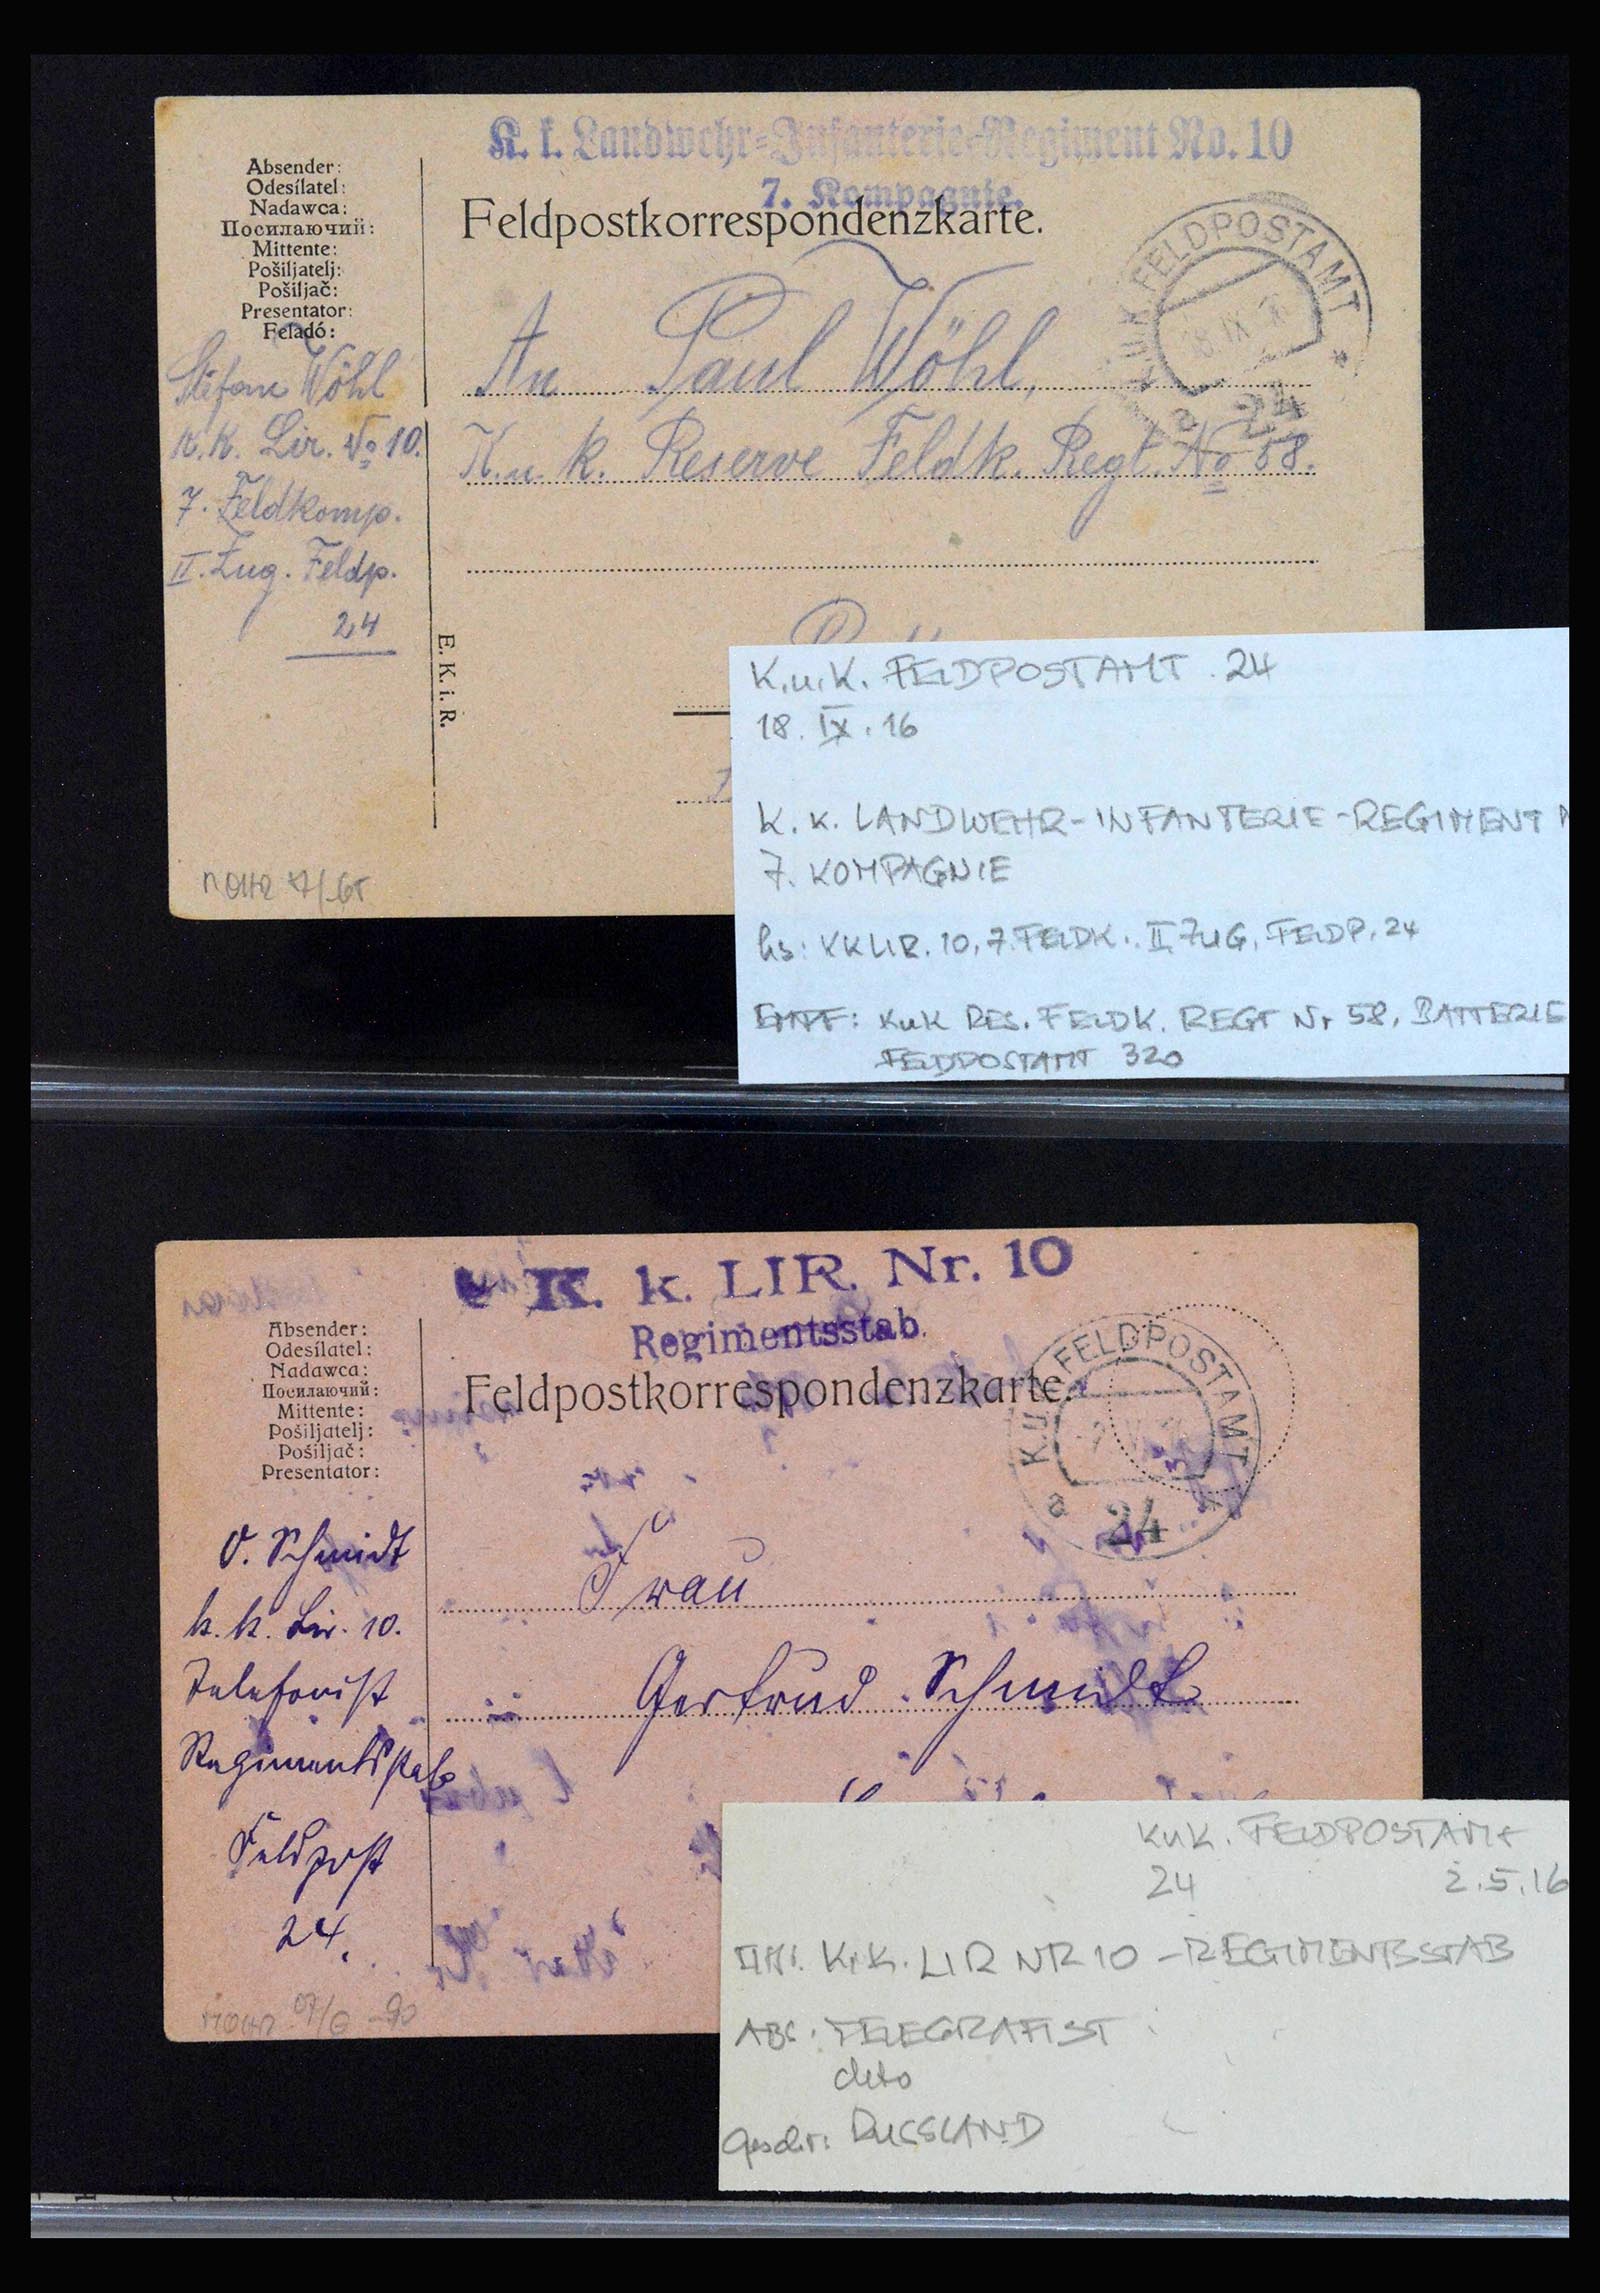 K. k. Landwehr-Infanterie-Regiment No. 10
7. Kompagnie.
Feldpostkorrespondenzkarte.
Absender:
Odesílatel:
Nadawca:
Посилаючий:
Mittente:
Pošiljatelj:
Pošiljač:
Presentator:
Feladó:
Stefan Wöhl
K. K. Lir. No 10.
7. Feldkomp.
II. Zug. Feldp.
24
E. K. i. R.
K.u.K. FELDPOSTAMT
18 IX 16
a 24 *
An Paul Wöhl,
K. u. k. Reserve Feldk. Regt. No 58.
K.u.K. FELDPOSTAMT 24
18. IX. 16
K. K. LANDWEHR-INFANTERIE-REGIMENT
7. KOMPAGNIE
hs: KKLIR. 10, 7. FELDK. II. ZUG, FELDP. 24
EMPF: KuK RES. FELDK. REGT Nr 58, BATTERIE
FELDPOSTAMT 320
K. k. LIR. Nr. 10
Regimentsstab.
Feldpostkorrespondenzkarte.
Absender:
Odesílatel:
Nadawca:
Посилаючий:
Mittente:
Pošiljatelj:
Pošiljač:
Presentator:
O. Schmidt
k. k. Lir. 10.
Telefonist
Regimentsstab
Feldpost
24.
K.u.K. FELDPOSTAMT
a 24 *
Frau
Gertrud Schmidt
KuK. FELDPOSTAMt
24 2.5.16
K.K. LIR NR 10 - REGIMENTSSTAB
ABS: TELEGRAFIST
deto
Geschr: RUSSLAND